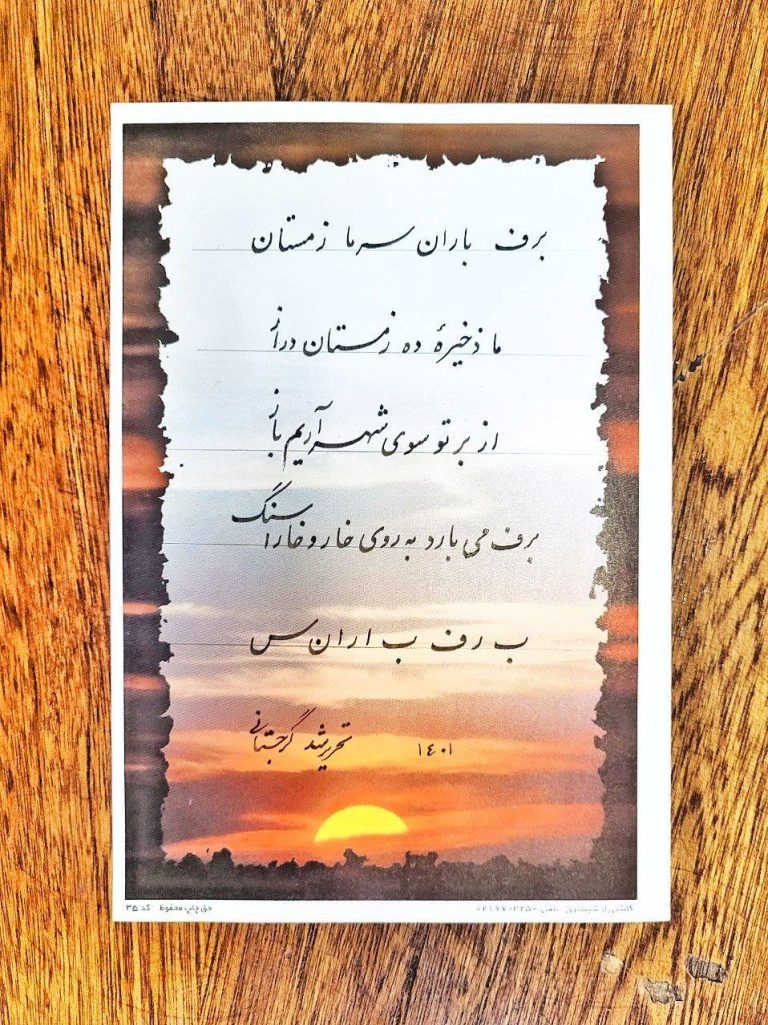 برف باران سرما زمستان
ما ذخیرهٔ ده زمستان دراز
از بر تو سوی شهر آریم باز
برف می بارد به روی خار و خارا سنگ
ب رف ب اران س
۱۴۰۱ تحریر شد گرجستانی
حق چاپ محفوظ کد ۳۵